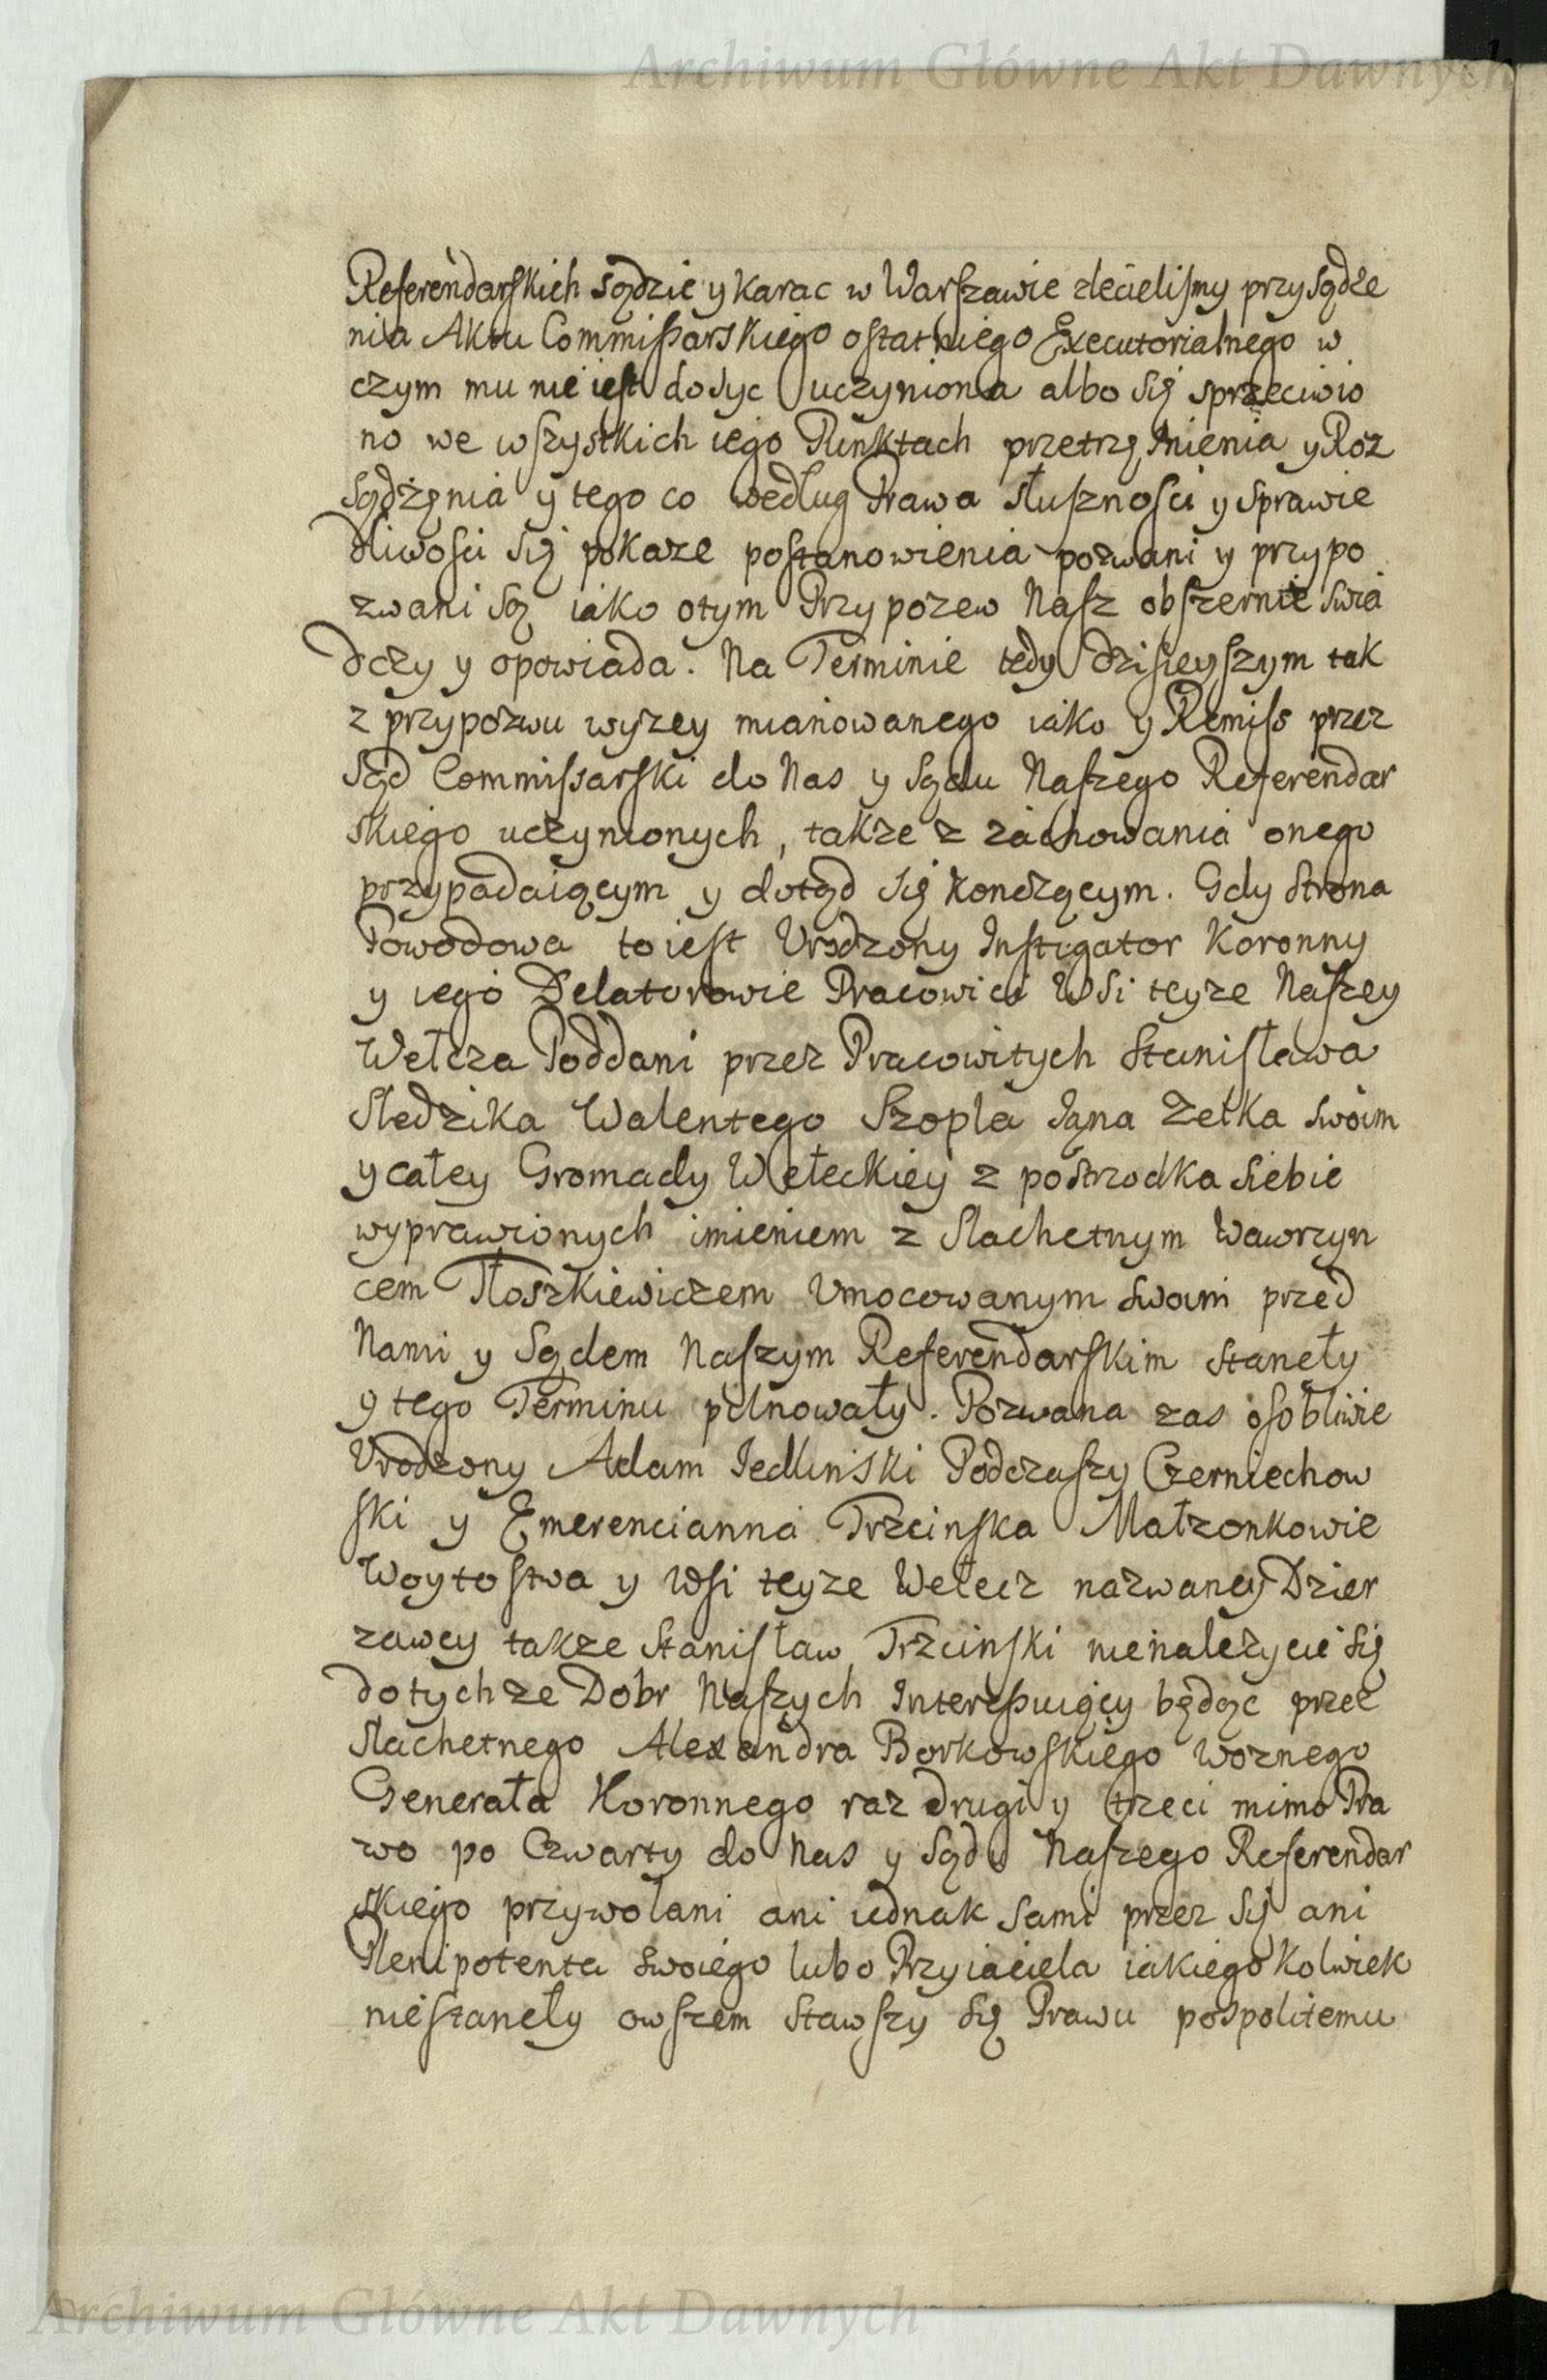 Archiwum Główne Akt Dawnych
Referendarskich sądzic y karac w Warszawie zlecielismy przysądze
nia Aktu Commissarskiego ostatniego Executorialnego w
czym mu nie iest dosyc uczyniona albo się sprzeciwio
no we wszystkich iego Punktach przetrzęsnienia y Roz
sądzęnia y tego co według Prawa słusznosci y sprawie
dliwosci się pokaze postanowienia pozwani y przypo
zwani są iako otym Przypozew Nasz obszernie swia
dczy y opowiada. Na Terminie tedy dzisieyszym tak
z przypozwu wyzey mianowanego iako y Remiss przez
Sąd Commissarski do Nas y Sądu Naszego Referendar
skiego uczynionych, takze z zachowania onego
przypadaiącym y dotąd się konczącym. Gdy Strona
Powodowa to iest Vrodzony Instigator Koronny
y iego Delatorowie Pracowici Wsi teyze Naszey
Wełcza Poddani przez Pracowitych Stanisława
Sledzika Walentego Szopla Jana Zełka swoim
y całey Gromady Wełeckiey z postrzodka siebie
wyprawionych imieniem z Slachetnym Wawrzyn
cem Tłoszkiewiczem Vmocowanym swoim przed
Nami y Sądem Naszym Referendarskim staneły
y tego Terminu pilnowały. Pozwana zas osobliwie
Vrodzony Adam Jedlinski Podczaszy Czerniechow
ski y Emerencianna Trzcinska Małzonkowie
Woytostwa y Wsi teyze Wełecz nazwaney Dzier
zawcy takze Stanisław Trzcinski nienalezycie się
dotychze Dobr Naszych Interessuiący będąc przez
Slachetnego Alexandra Borkowskiego Woznego
Generała Koronnego raz drugi y trzeci mimo Pra
wo po Czwarty do Nas y Sądu Naszego Referendar
skiego przywołani ani iednak sami przez się ani
Plenipotenta swoiego lubo Przyiaciela iakiego kolwiek
niestaneły owszem stawszy się Prawu pospolitemu
Archiwum Główne Akt Dawnych